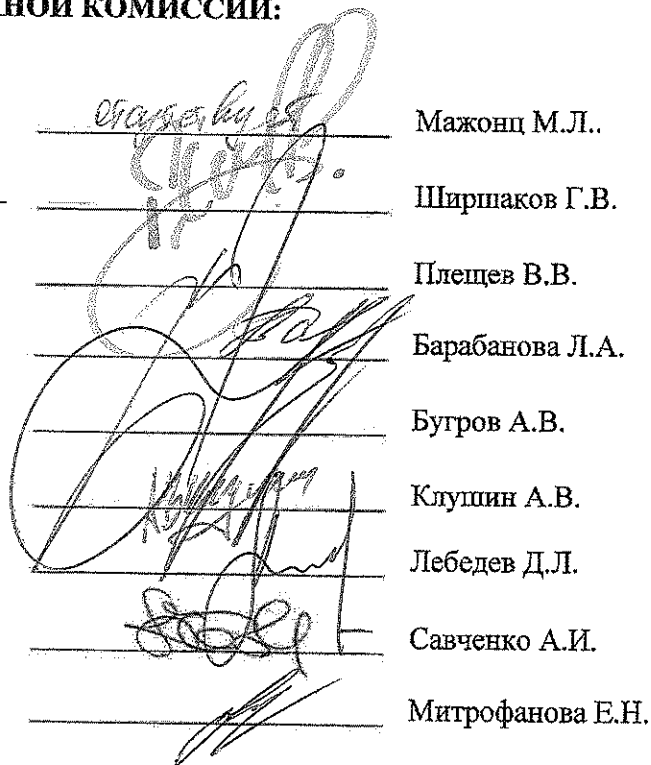 НОЙ КОМИССИИ:
Мажонц М.Л..
Ширшаков Г.В.
Плещев В.В.
Барабанова Л.А.
Бугров А.В.
Клушин А.В.
Лебедев Д.Л.
Савченко А.И.
Митрофанова Е.Н.